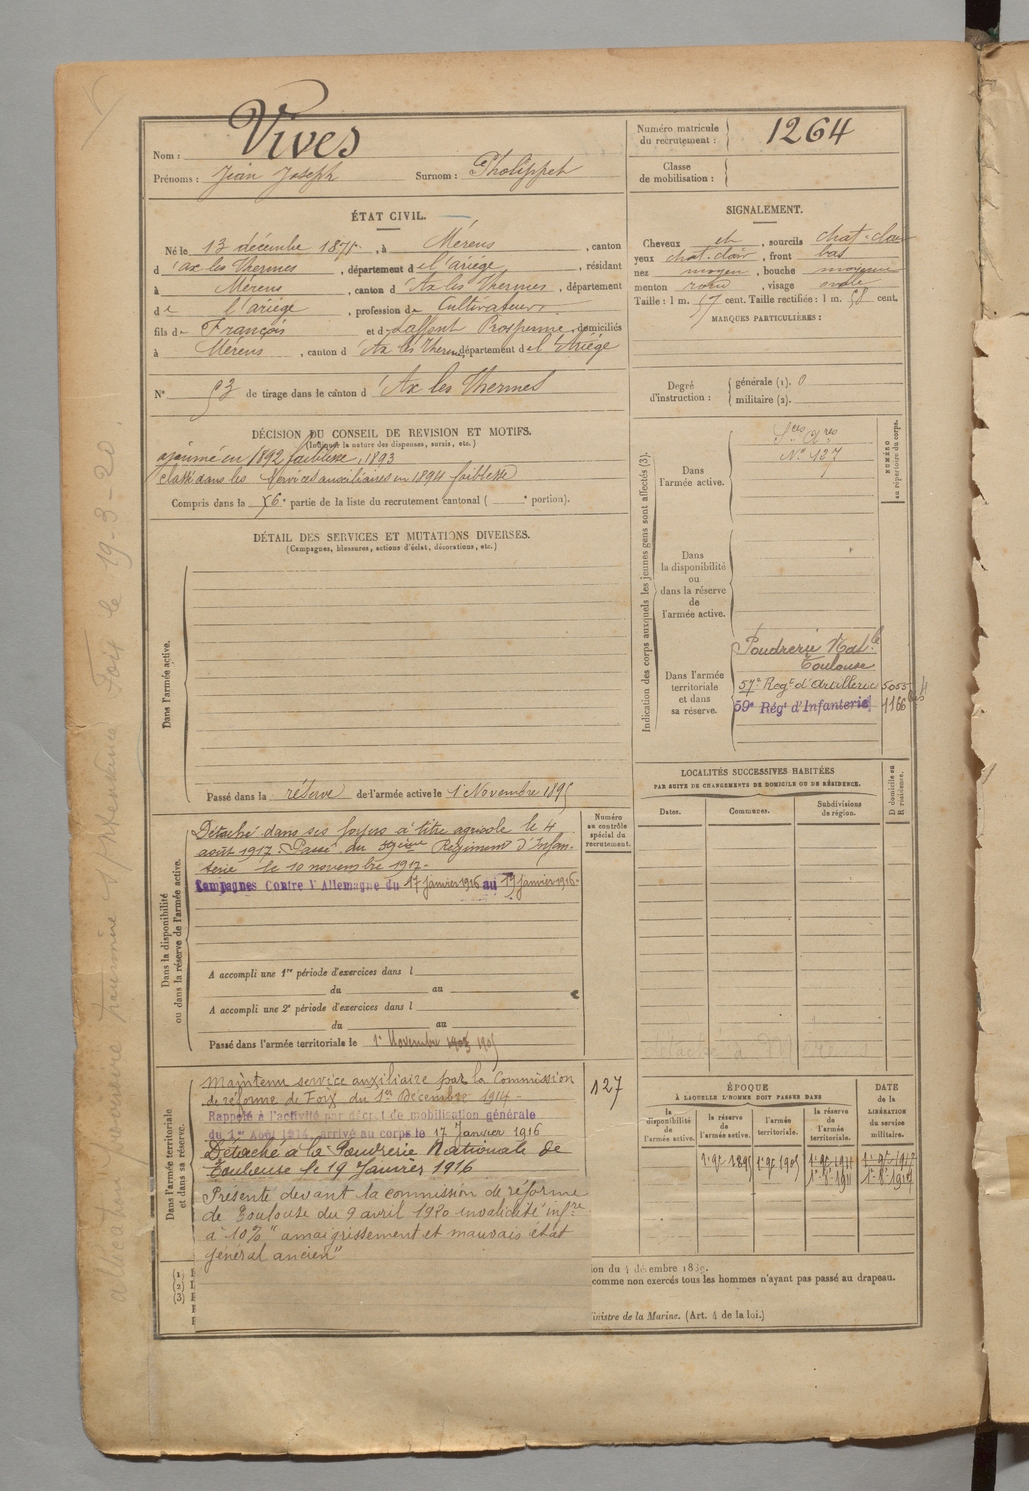 Nom : Vives
Prénoms : Jean Joseph Surnom : Pholippet
Numéro matricule
du recrutement : 1264
Classe
de mobilisation :
ÉTAT CIVIL.
Né le 13 décembre 1871, à Mérens, canton
d'Ax les Thermes, département de l'ariége, résidant
à Mérens, canton d'Ax les Thermes, département
de l'ariége, profession de Cultivateur
fils de François et de Laffont Prosperine, domiciliés
à Mérens, canton d'Ax les Thermes, département de l'Ariége
N° 53 de tirage dans le canton d'Ax les Thermes
SIGNALEMENT.
Cheveux ch, sourcils chat-clair
yeux chat-clair, front bas
nez moyen, bouche moyenne
menton rond, visage ovale
Taille : 1 m. 57 cent. Taille rectifiée : 1 m. 58 cent.
MARQUES PARTICULIÈRES :
Degré
d'instruction :
générale (1). 0
militaire (2).
DÉCISION DU CONSEIL DE REVISION ET MOTIFS.
(Indiquer la nature des dispenses, sursis, etc.)
ajourné en 1892 faiblesse, 1893
Classé dans les Services auxiliaires en 1894 faiblesse
Compris dans la 6e partie de la liste du recrutement cantonal ( e portion).
DÉTAIL DES SERVICES ET MUTATIONS DIVERSES.
(Campagnes, blessures, actions d'éclat, décorations, etc.)
Dans l'armée active.
Passé dans la réserve de l'armée active le 1er Novembre 1895
Indication des corps auxquels les jeunes gens sont affectés (3).
NUMÉRO
au répertoire du corps.
Dans
l'armée active.
Sces Ares
N° 127
Dans
la disponibilité
ou
dans la réserve
de
l'armée active.
Dans l'armée
territoriale
et dans
sa réserve.
Poudrerie Natle
Toulouse
57e Regt d'Artillerie 5055
59e Régt d'Infanterie 1166
LOCALITÉS SUCCESSIVES HABITÉES
PAR SUITE DE CHANGEMENTS DE DOMICILE OU DE RÉSIDENCE.
Dates.
Communes.
Subdivisions
de région.
D domicile ou
R résidence.
Dans la disponibilité
ou dans la réserve de l'armée active.
Numéro
au contrôle
spécial du
recrutement.
Détaché dans ses foyers à titre agricole le 4
août 1917. Passé du 59ème Régiment d'Infan-
terie le 10 novembre 1917-
Campagnes Contre l'Allemagne du 17 janvier 1916 au 19 janvier 1916-
A accompli une 1re période d'exercices dans l
du au
A accompli une 2e période d'exercices dans l
du au
Passé dans l'armée territoriale le 1er Novembre 1905
Dans l'armée territoriale
et dans sa réserve.
127
Maintenu service auxiliaire par la Commission
de réforme de Foix du 1er Décembre 1914-
Rappelé à l'activité par décret de mobilisation générale
du 1er Août 1914, arrivé au corps le 17 Janvier 1916
Détaché à la Poudrerie Nationale de
Toulouse le 19 Janvier 1916
Présenté devant la commission de réforme
de Toulouse du 9 avril 1920 invalidité infre
à 10% "amaigrissement et mauvais état
général ancien"
ÉPOQUE
À LAQUELLE L'HOMME DOIT PASSER DANS
la
disponibilité
de
l'armée active.
la réserve
de
l'armée active.
l'armée
territoriale.
la réserve
de
l'armée
territoriale.
DATE
de la
LIBÉRATION
du service
militaire.
1er 9e 1895
1er 9e 1905
(1)
(2)
(3)
ion du 4 décembre 1889.
comme non exercés tous les hommes n'ayant pas passé au drapeau.
inistre de la Marine. (Art. 4 de la loi.)